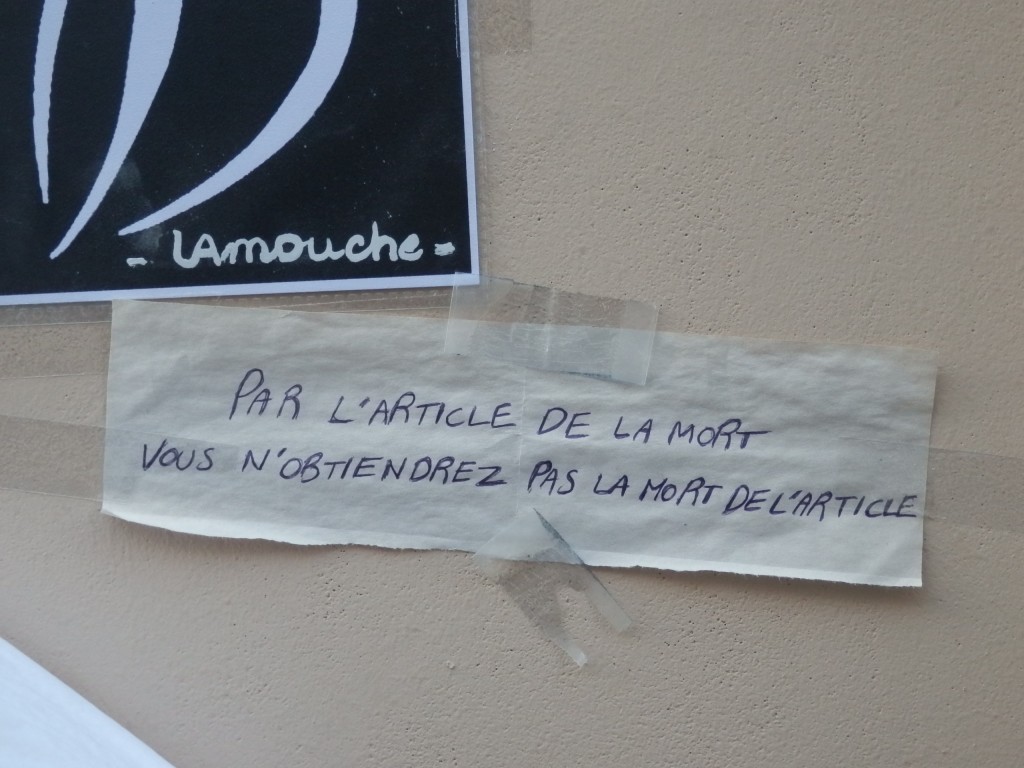 - LAmouche -
PAR L'ARTICLE DE LA MORT
VOUS N'OBTIENDREZ PAS LA MORT DE L'ARTICLE